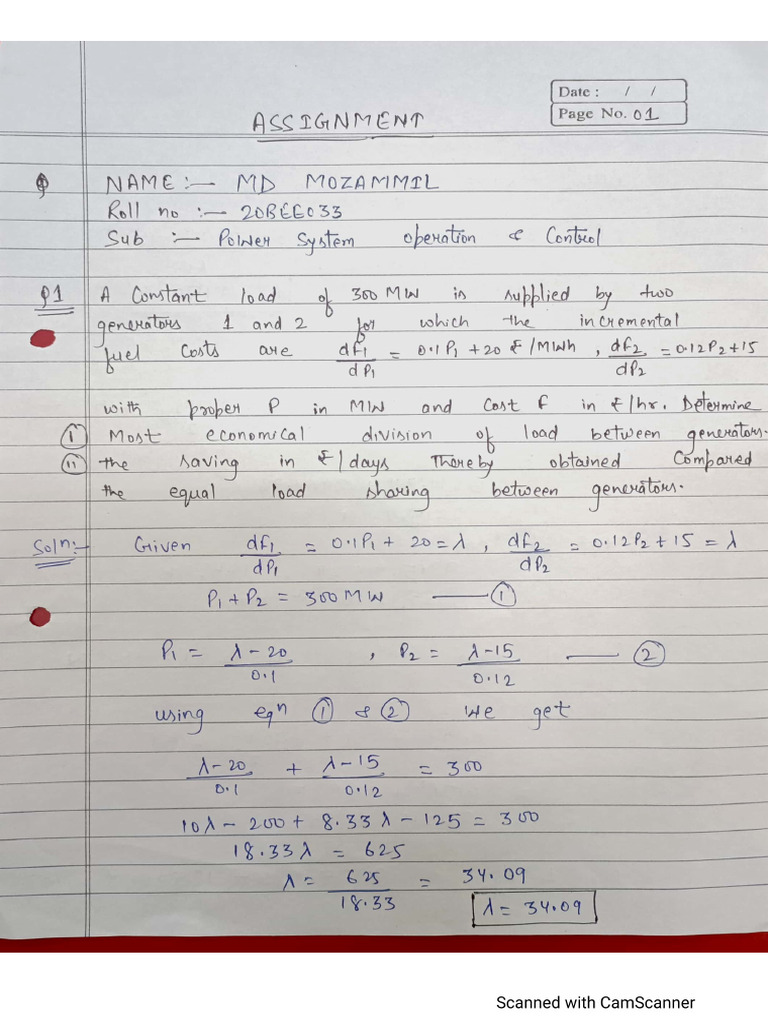 Date : / /
Page No. 01
ASSIGNMENT
NAME :- MD MOZAMMIL
Roll no :- 20BEE033
Sub :- Power System operation & Control
Q1 A Constant load of 300 MW is supplied by two
generators 1 and 2 for which the incremental
fuel Costs are df1/dP1 = 0.1P1 + 20 ₹/MWh , df2/dP2 = 0.12P2 + 15
with proper P in MW and Cost f in ₹/hr. Determine
(i) Most economical division of load between generators.
(ii) the saving in ₹/days Thereby obtained Compared
the equal load sharing between generators.
Soln:- Given df1/dP1 = 0.1P1 + 20 = λ , df2/dP2 = 0.12P2 + 15 = λ
P1 + P2 = 300 MW — ①
P1 = λ-20/0.1 , P2 = λ-15/0.12 — ②
using eqn ① & ② we get
λ-20/0.1 + λ-15/0.12 = 300
10λ - 200 + 8.33λ - 125 = 300
18.33λ = 625
λ = 625/18.33 = 34.09
λ = 34.09
Scanned with CamScanner